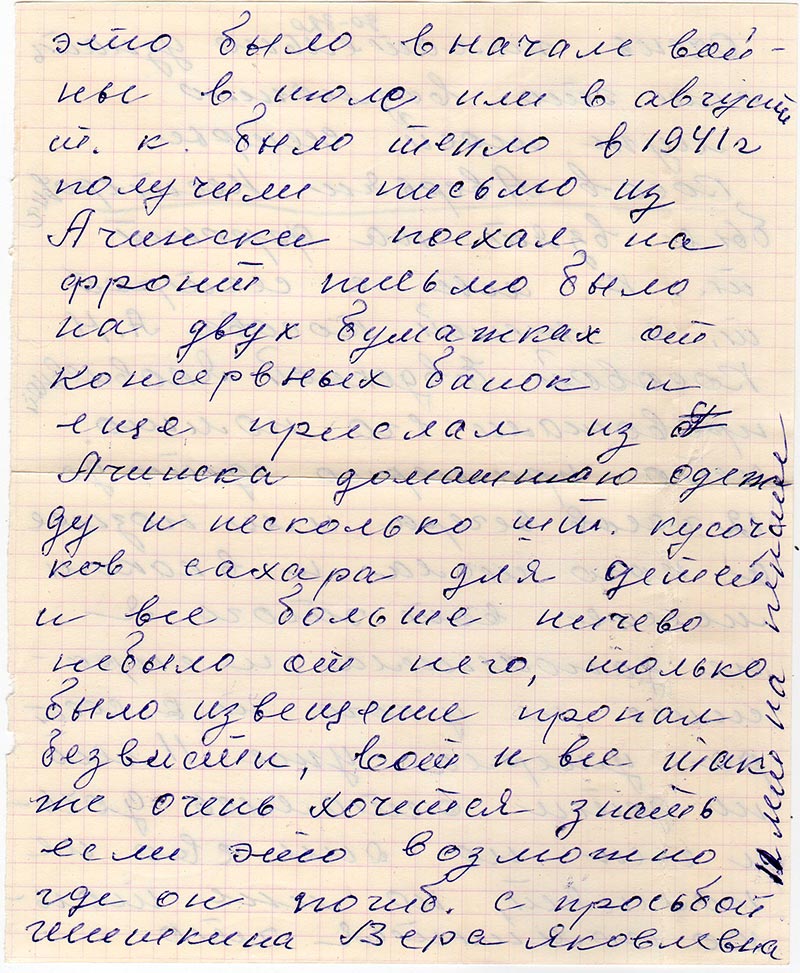 это было в начале вой-
ны в июле или в августе
т. к. было тепло в 1941г
получили письмо из
Ачинска поехал на
фронт письмо было
на двух бумажках от
консервных банок и
еще прислал из
Ачинска домашнаю одеж
ду и несколько шт. кусоч
ков сахара для детей
и все больше ничево
небыло от него, только
было извещение пропал
безвисти, вот и все так
же очень хочется знать
если это возможно
где он погиб. с просьбой
Шишкина Вера Яковлевна
12 лет на пенсии